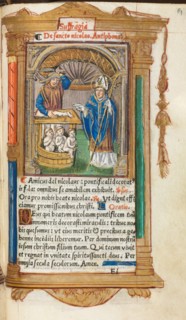 Suffragia
De sancto nicolao. Antiphona.
Amicus dei nicolaus: pontificali decorat
infulis omnibus se amabilem exhibuit.
Ora pro nobis beate nicolae. Ut digni effi
ciamur promissionibus christi. Oratio.
Deus qui beatum nicolaum pontificem tuū
innumeris decorasti miraculis: tribue no
bis quesumus: ut eius meritis et precibus a ge
henne incēdiis liberemur. Per dominum nostrū
iesum christum filium tuum. Qui tecum vivit
et regnat in unitate spiritussancti deus. Per
omnia secula seculorum. Amen.